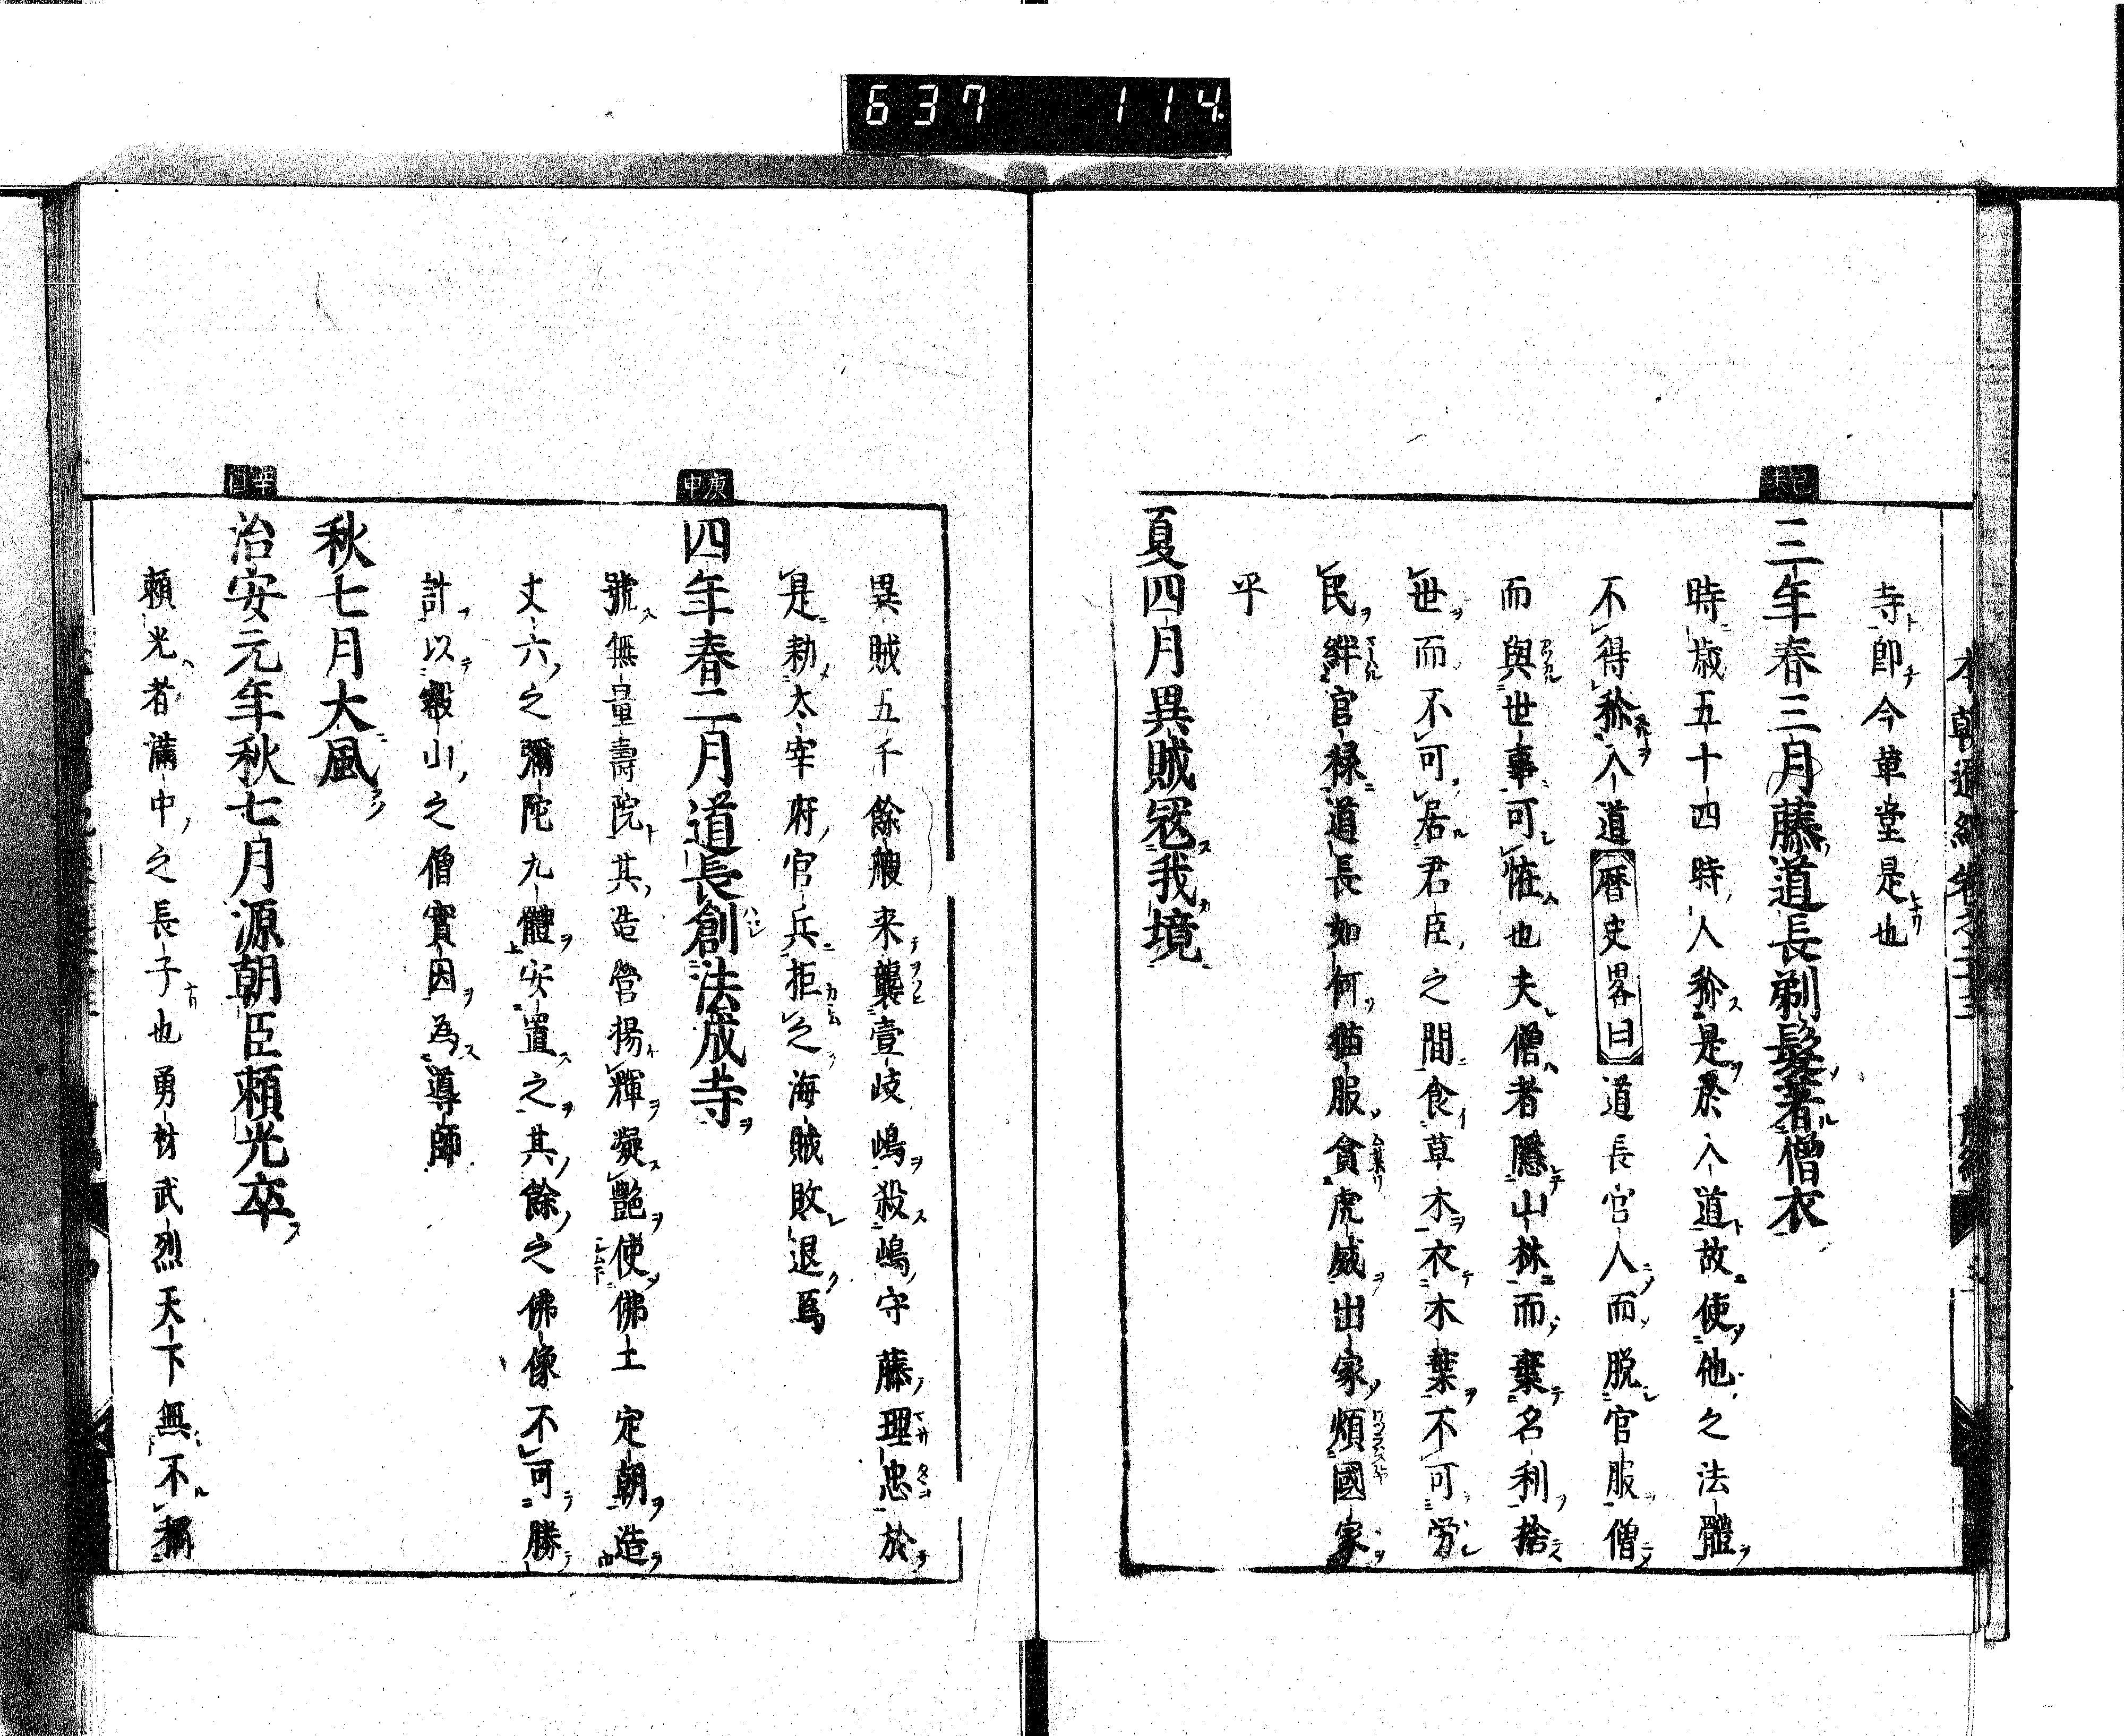 637 114
寺即今革堂是也
己未
三年春三月藤道長剃髮著僧衣
時歳五十四時人称是於入道故使他之法體
不得称入道暦史畧曰道長官人而脱官服僧
而與世事可恠也夫僧者隱山林而棄名利捨
世而不可居君臣之間食草木衣木葉不可労
民絆官禄道長如何猫服貪虎威出家煩國家
乎
夏四月異賊冦我境
異賊五千餘艘来襲壹岐嶋殺嶋守藤理忠於
是勅太宰府官兵拒之海賊敗退焉
庚申
四年春二月道長創法成寺
號無量壽院其造營揚輝凝艶使佛土定朝造
丈六之彌陀九體安置之其餘之佛像不可勝
計以叡山之僧實因為導師
秋七月大風
辛酉
治安元年秋七月源朝臣頼光卒
頼光者滿中之長子也勇材武烈天下無不稱